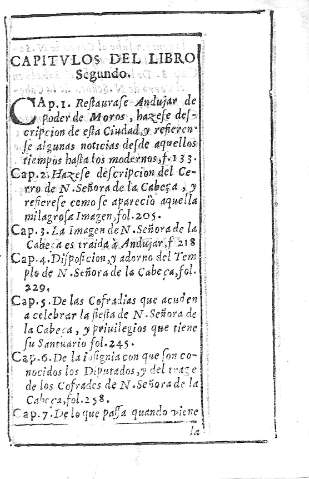 CAPITVLOS DEL LIBRO
Segundo.
CAp.1. Restaurase Andujar de
poder de Moros, hazese des-
cripcion de esta Ciudad, y refieren-
se algunas noticias desde aquellos
tiempos hasta los modernos, f.133.
Cap.2. Hazese descripcion del Ce-
rro de N. Señora de la Cabeça, y
refierese como se apareciò aquella
milagrosa Imagen, fol.205.
Cap.3. La Imagen de N. Señora de la
Cabeça es traida à Andujar, f 218
Cap.4. Disposicion, y adorno del Tem-
plo de N. Señora de la Cabeça, fol.
229.
Cap.5. De las Cofradias que acuden
a celebrar la fiesta de N. Señora de
la Cabeça, y privilegios que tiene
su Santuario fol.245.
Cap.6. De la insignia con que son co-
nocidos los Diputados, y del trage
de los Cofrades de N. Señora de la
Cabeça, fol.258.
Cap.7. De lo que passa quando viene
la